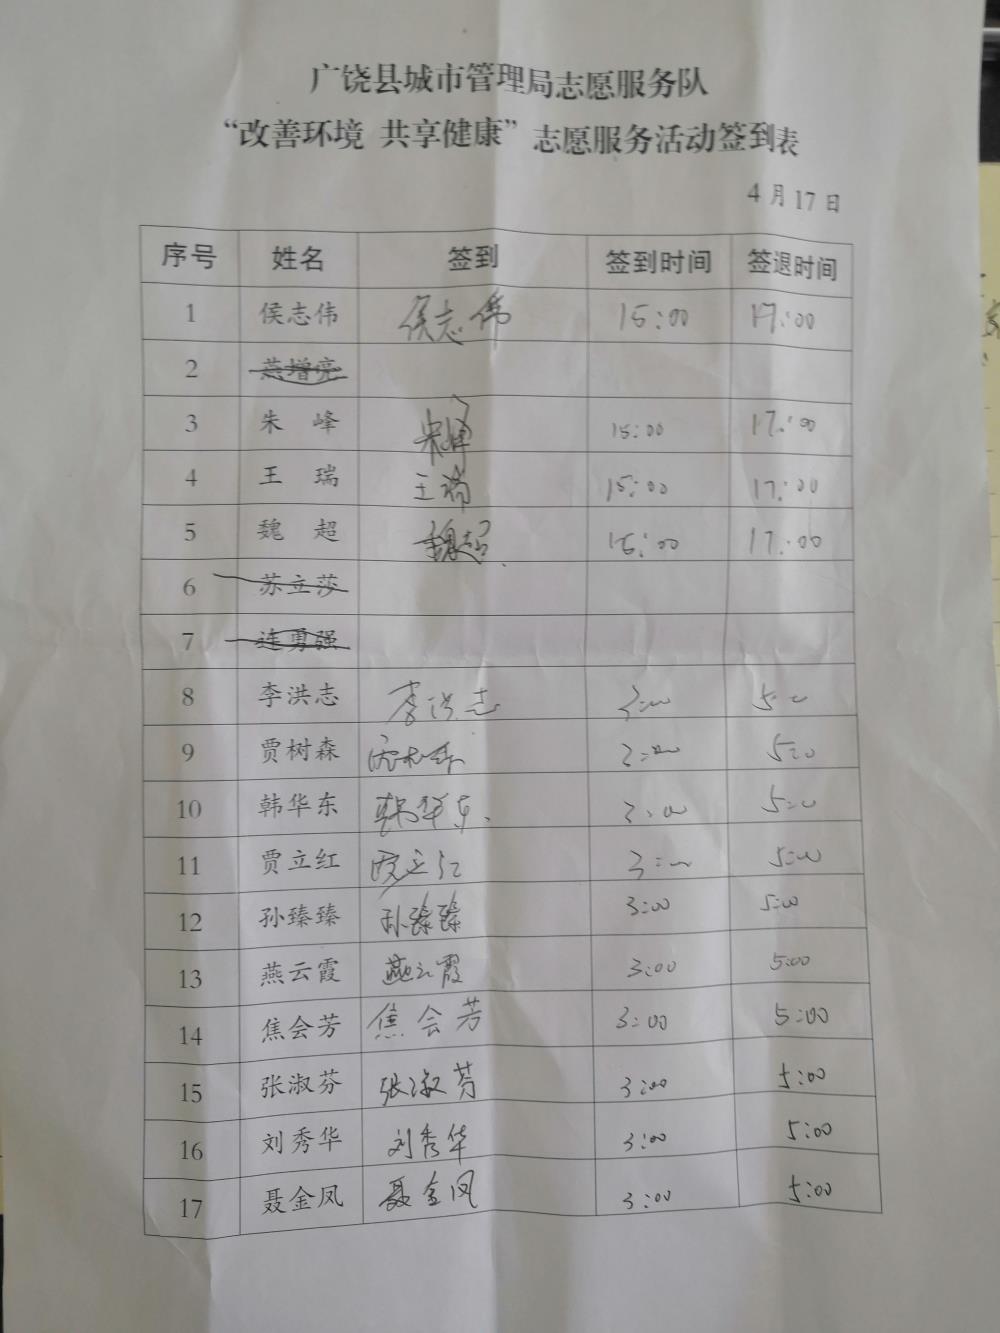 广饶县城市管理局志愿服务队
“改善环境 共享健康”志愿服务活动签到表
4月17日
序号 姓名 签到 签到时间 签退时间
1 侯志伟 侯志伟 15:00 17:00
2 燕增亮
3 朱 峰 朱峰 15:00 17:00
4 王 瑞 王瑞 15:00 17:00
5 魏 超 魏超 15:00 17:00
6 苏立莎
7 连勇强
8 李洪志 李洪志 3:00 5:00
9 贾树森 贾树森 3:00 5:00
10 韩华东 韩华东 3:00 5:00
11 贾立红 贾立红 3:00 5:00
12 孙臻臻 孙臻臻 3:00 5:00
13 燕云霞 燕云霞 3:00 5:00
14 焦会芳 焦会芳 3:00 5:00
15 张淑芬 张淑芬 3:00 5:00
16 刘秀华 刘秀华 3:00 5:00
17 聂金凤 聂金凤 3:00 5:00